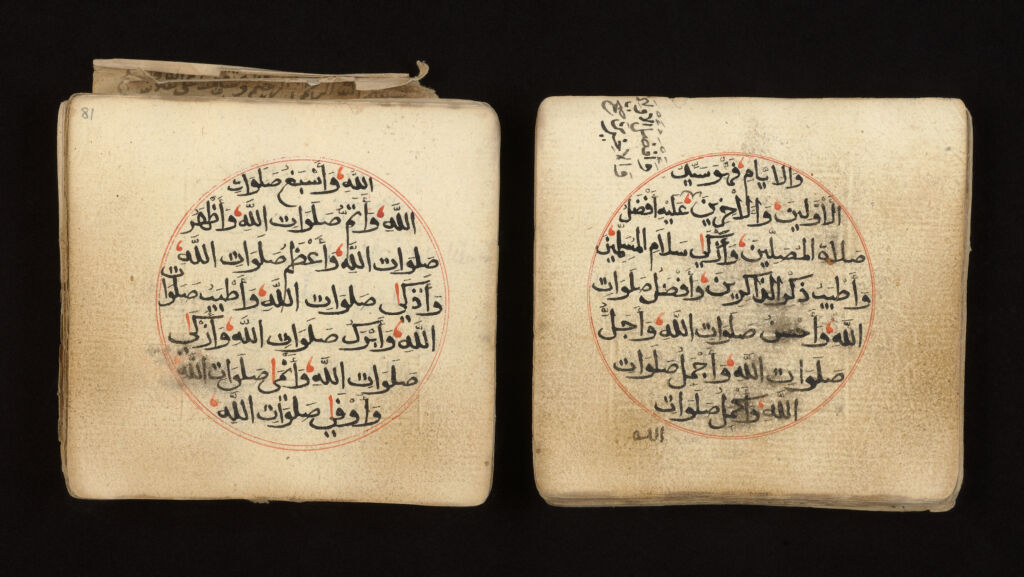 وأفضل الأولين
والآخرين صح
والايام فهو سيد
الأولين والاخرين عليه أفضل
صلاة المصلين وأزكي سلام المسلمين
وأطيب ذكر الذاكرين وأفضل صلوات
الله وأحسن صلوات الله وأجل
صلوات الله وأجمل صلوات
الله وأكمل صلوات
الله
81
الله وأسبغ صلوات
الله وأتم صلوات الله وأظهر
صلوات الله وأعظم صلوات الله
وأذكي صلوات الله وأطيب صلوات
الله وأبرك صلوات الله وأزكي
صلوات الله وأنما صلوات الله
وأوفي صلوات الله